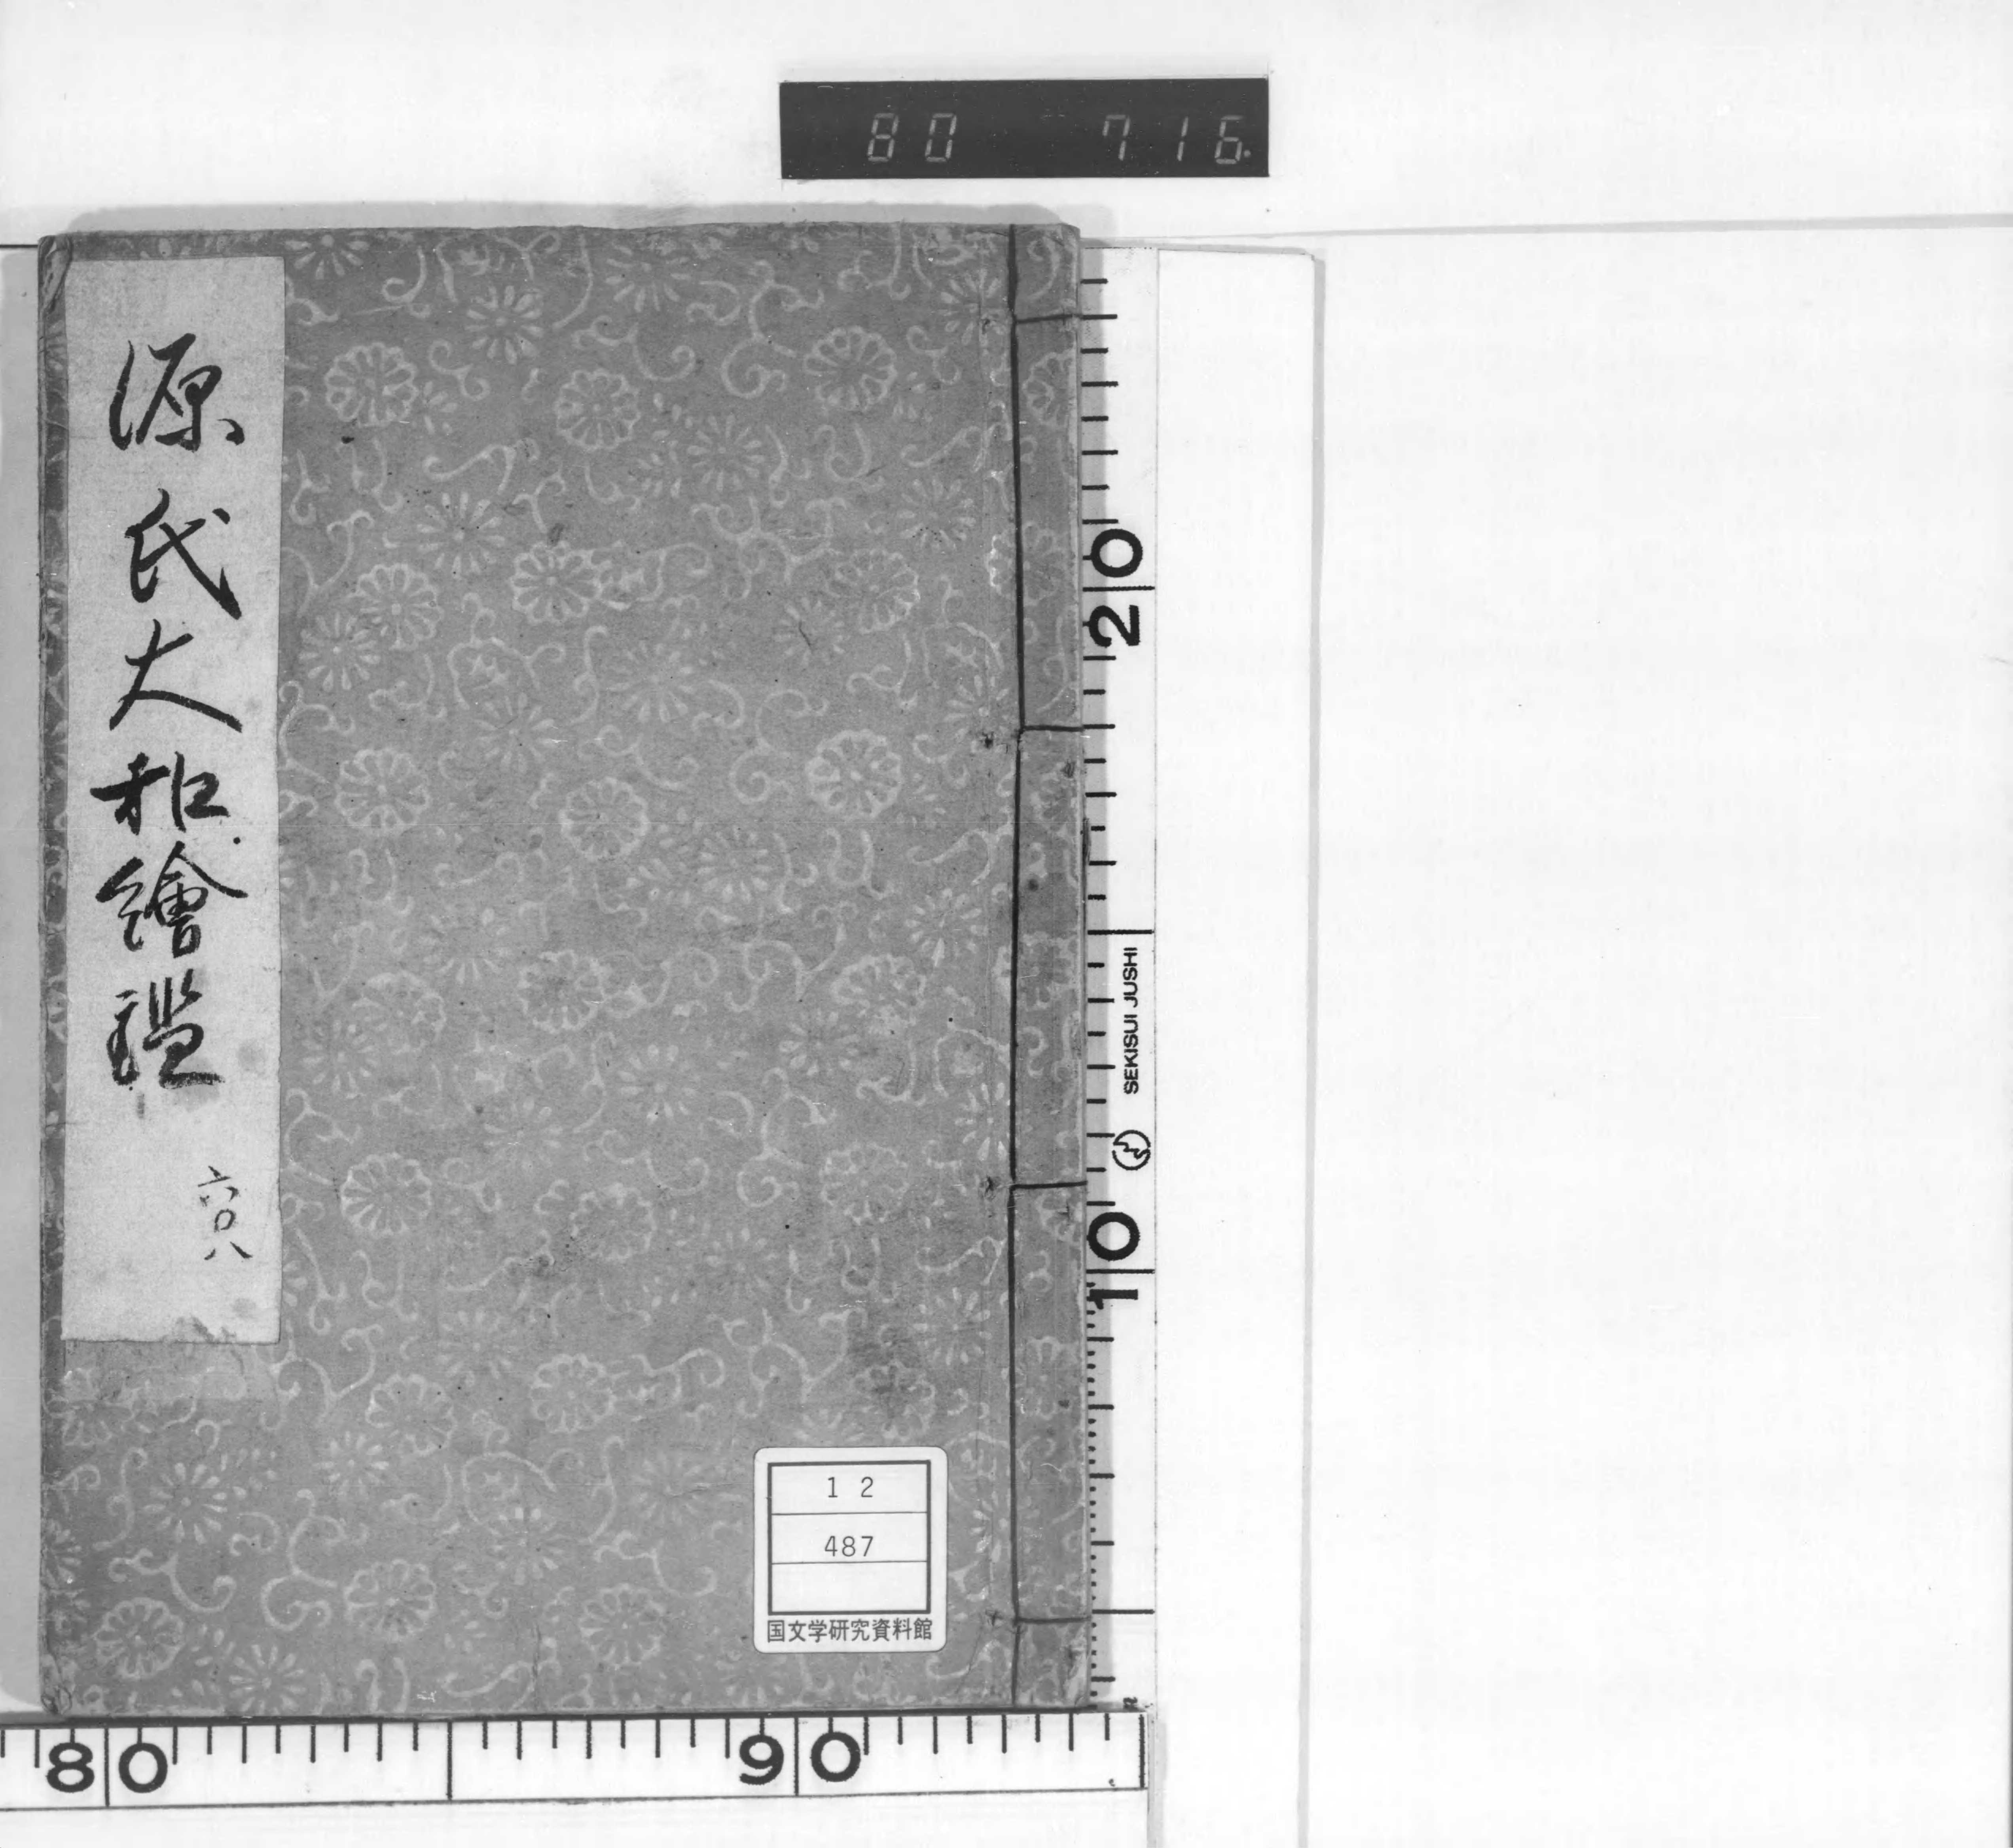 80 716.
源氏大和繪鑑
六〇八
20
SEKISUI JUSHI
10
1 2
487
国文学研究資料館
80 90